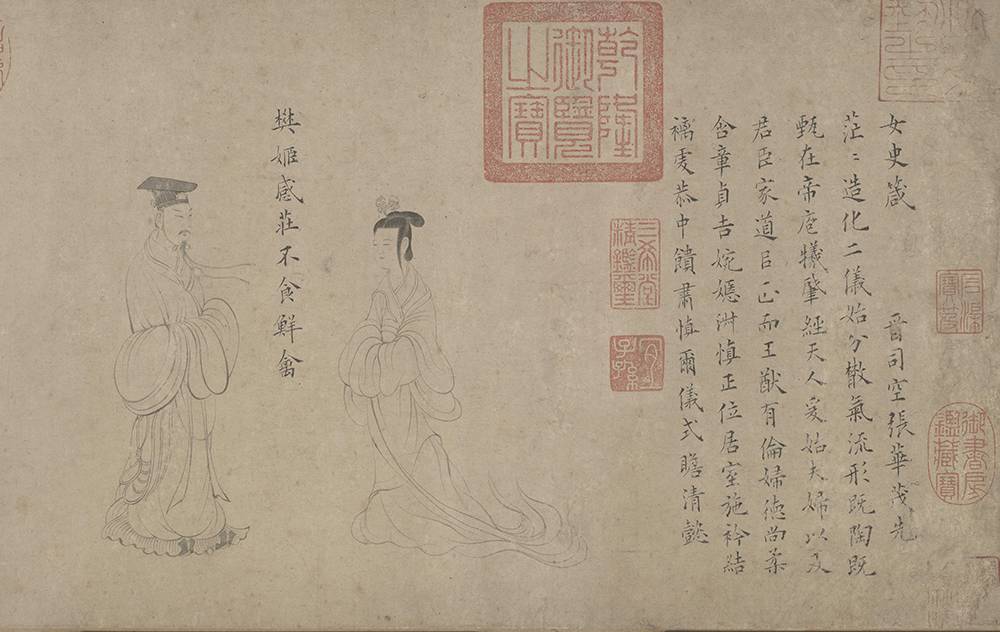 女史箴　晉司空張華茂先
茫〻造化二儀始分散氣流形既陶既
甄在帝庖犧肇經天人爰始夫婦以及
君臣家道㠯正而王猷有倫婦德尚柔
含章貞吉婉嫕淑慎正位居室施衿結
褵虔恭中饋肅慎爾儀式瞻清懿
樊姬感莊不食鮮禽
石渠
寶笈
御書房
鑑藏寶
乾隆
御覽
之寶
三希堂
精鑑璽
宜
子孫